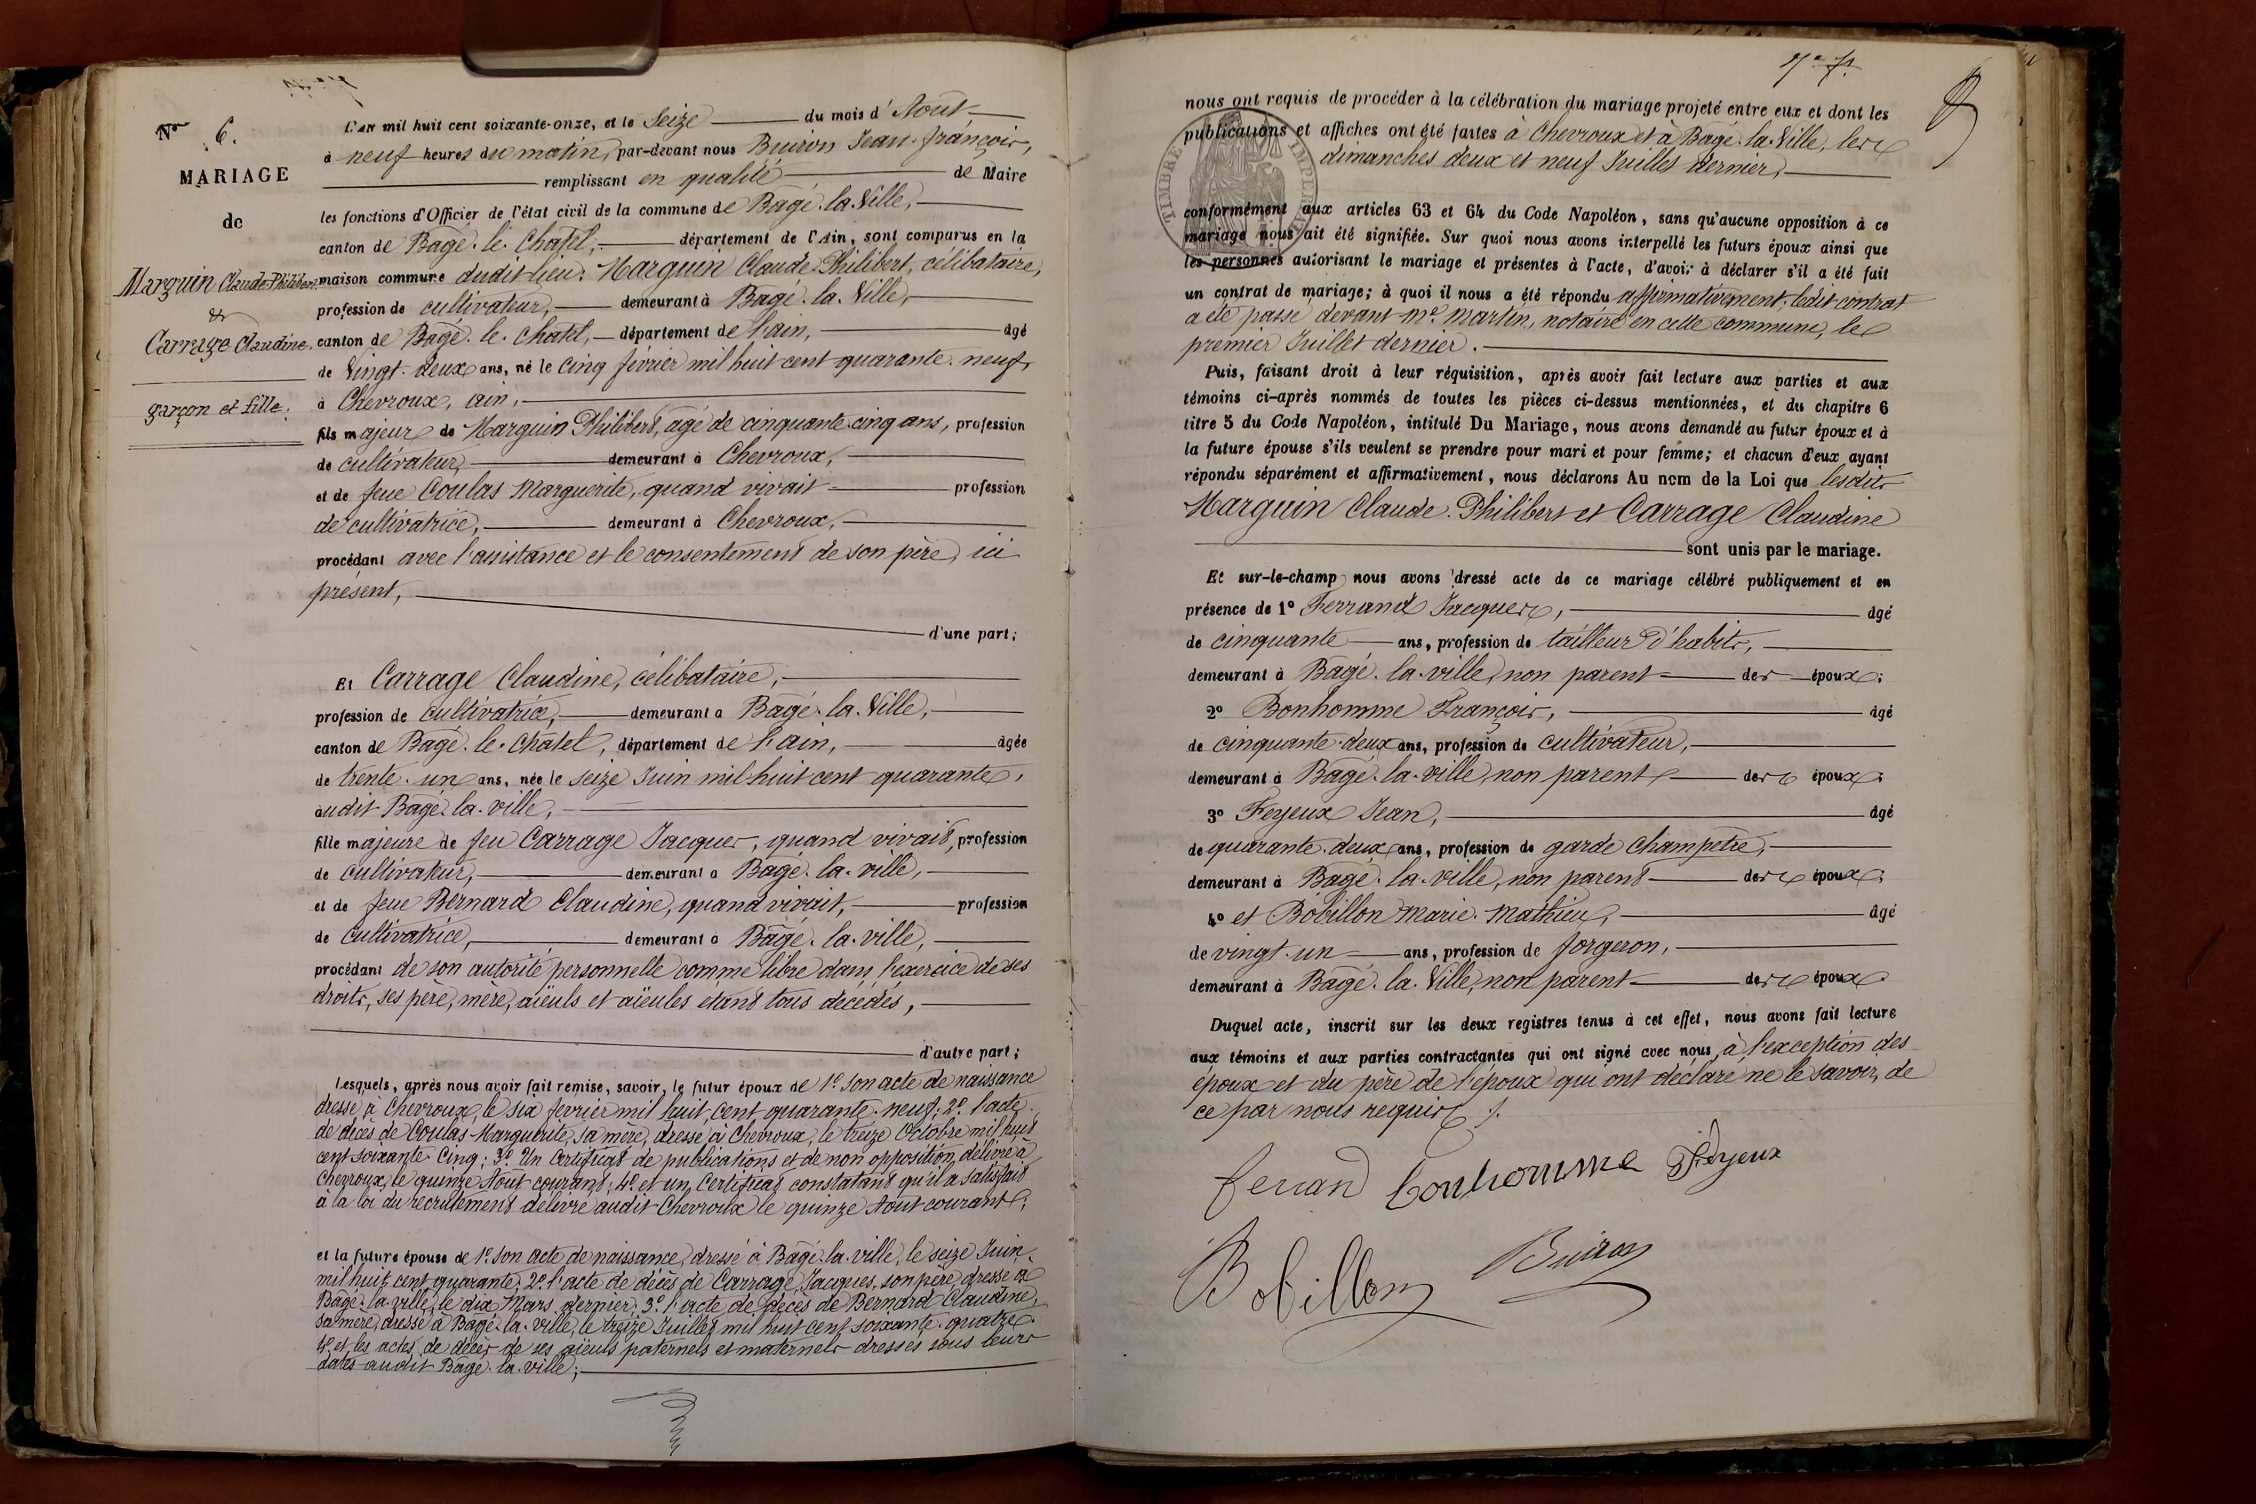 N° 6.
MARIAGE
de
Marguin Claude-Philibert
&
Carrage Claudine.
garçon et fille.
L'an mil huit cent soixante-onze, et le Seize du mois d'Aout
à neuf heures du matin, par-devant nous Buiron Jean-françois,
remplissant en qualité de Maire
les fonctions d'Officier de l'état civil de la commune de Bagé-la-Ville,
canton de Bagé-le-Chatel, département de l'Ain, sont comparus en la
maison commune dudit lieu: Marguin Claude-Philibert, célibataire,
profession de cultivateur, demeurant à Bagé-la-Ville,
canton de Bagé-le-Chatel, département de l'ain, âgé
de Vingt-deux ans, né le cinq février mil huit cent quarante-neuf,
à Chevroux, ain,
fils majeur de Marguin Philibert, agé de cinquante cinq ans, profession
de cultivateur, demeurant à Chevroux,
et de feue Coulas Marguerite, quand vivait profession
de cultivatrice, demeurant à Chevroux,
procédant avec l'assistance et le consentement de son père, ici
présent,
d'une part;
Et Carrage Claudine, célibataire,
profession de cultivatrice, demeurant à Bagé-la-Ville,
canton de Bagé-le-Chatel, département de l'ain, âgée
de trente-un ans, née le seize Juin mil huit cent quarante,
audit Bagé-la-ville,
fille majeure de feu Carrage Jacques, quand vivait, profession
de cultivateur, demeurant à Bagé-la-ville,
et de feue Bernard Claudine, quand vivait, profession
de cultivatrice, demeurant à Bagé-la-ville,
procédant de son autorité personnelle comme libre dans l'exercice de ses
droits, ses père, mère, aïeuls et aïeules étant tous décédés,
d'autre part;
Lesquels, après nous avoir fait remise, savoir, le futur époux de 1° son acte de naissance
dressé à Chevroux, le six fevrier mil huit cent quarante-neuf; 2° l'acte
de décès de Coulas Marguerite, sa mère, dressé à Chevroux, le treize Octobre mil huit
cent soixante-cinq; 3° Un Certificat de publications et de non opposition, délivré à
Chevroux, le quinze Aout courant; 4° et un Certificat constatant qu'il a satisfait
à la loi du recrutement délivré audit Chevroux le quinze Aout courant;
et la future épouse de 1° son acte de naissance, dressé à Bagé-la-ville, le seize Juin
mil huit cent quarante; 2° l'acte de décès de Carrage Jacques, son père, dressé à
Bagé-la-ville, le dix Mars dernier; 3° l'acte de décès de Bernard Claudine,
sa mère, dressé à Bagé-la-ville, le treize Juillet mil huit cent soixante-quatre
4° et les actes de décès de ses aïeuls paternels et maternels dressés sous leurs
dates audit Bagé-la-ville;
nous ont requis de procéder à la célébration du mariage projeté entre eux et dont les
publications et affiches ont été faites à Chevroux et à Bagé-la-Ville, les
dimanches deux et neuf Juillet dernier,
TIMBRE IMPERIAL
conformément aux articles 63 et 64 du Code Napoléon, sans qu'aucune opposition à ce
mariage nous ait été signifiée. Sur quoi nous avons interpellé les futurs époux ainsi que
les personnes autorisant le mariage et présentes à l'acte, d'avoir à déclarer s'il a été fait
un contrat de mariage; à quoi il nous a été répondu affirmativement, ledit contrat
a été passé devant Me. Martin, notaire en cette commune, le
premier Juillet dernier.
Puis, faisant droit à leur réquisition, après avoir fait lecture aux parties et aux
témoins ci-après nommés de toutes les pièces ci-dessus mentionnées, et du chapitre 6
titre 5 du Code Napoléon, intitulé Du Mariage, nous avons demandé au futur époux et à
la future épouse s'ils veulent se prendre pour mari et pour femme; et chacun d'eux ayant
répondu séparément et affirmativement, nous déclarons Au nom de la Loi que lesdits
Marguin Claude-Philibert et Carrage Claudine
sont unis par le mariage.
Et sur-le-champ nous avons dressé acte de ce mariage célébré publiquement et en
présence de 1° Ferrand Jacques, âgé
de cinquante ans, profession de tailleur d'habits,
demeurant à Bagé-la-ville, non parent des époux;
2° Bonhomme François, âgé
de cinquante-deux ans, profession de cultivateur,
demeurant à Bagé-la-ville, non parent des époux;
3° Feyeux Jean, âgé
de quarante-deux ans, profession de garde champetre,
demeurant à Bagé-la-ville, non parent des époux;
4° et Bobillon Marie-Mathieu, âgé
de vingt-un ans, profession de forgeron,
demeurant à Bagé-la-Ville, non parent des époux
Duquel acte, inscrit sur les deux registres tenus à cet effet, nous avons fait lecture
aux témoins et aux parties contractantes qui ont signé avec nous, à l'exception des
époux et du père de l'époux qui ont déclaré ne le savoir, de
ce par nous requis.
ferrand bonhomme Feyeux
Bobillon Buiron